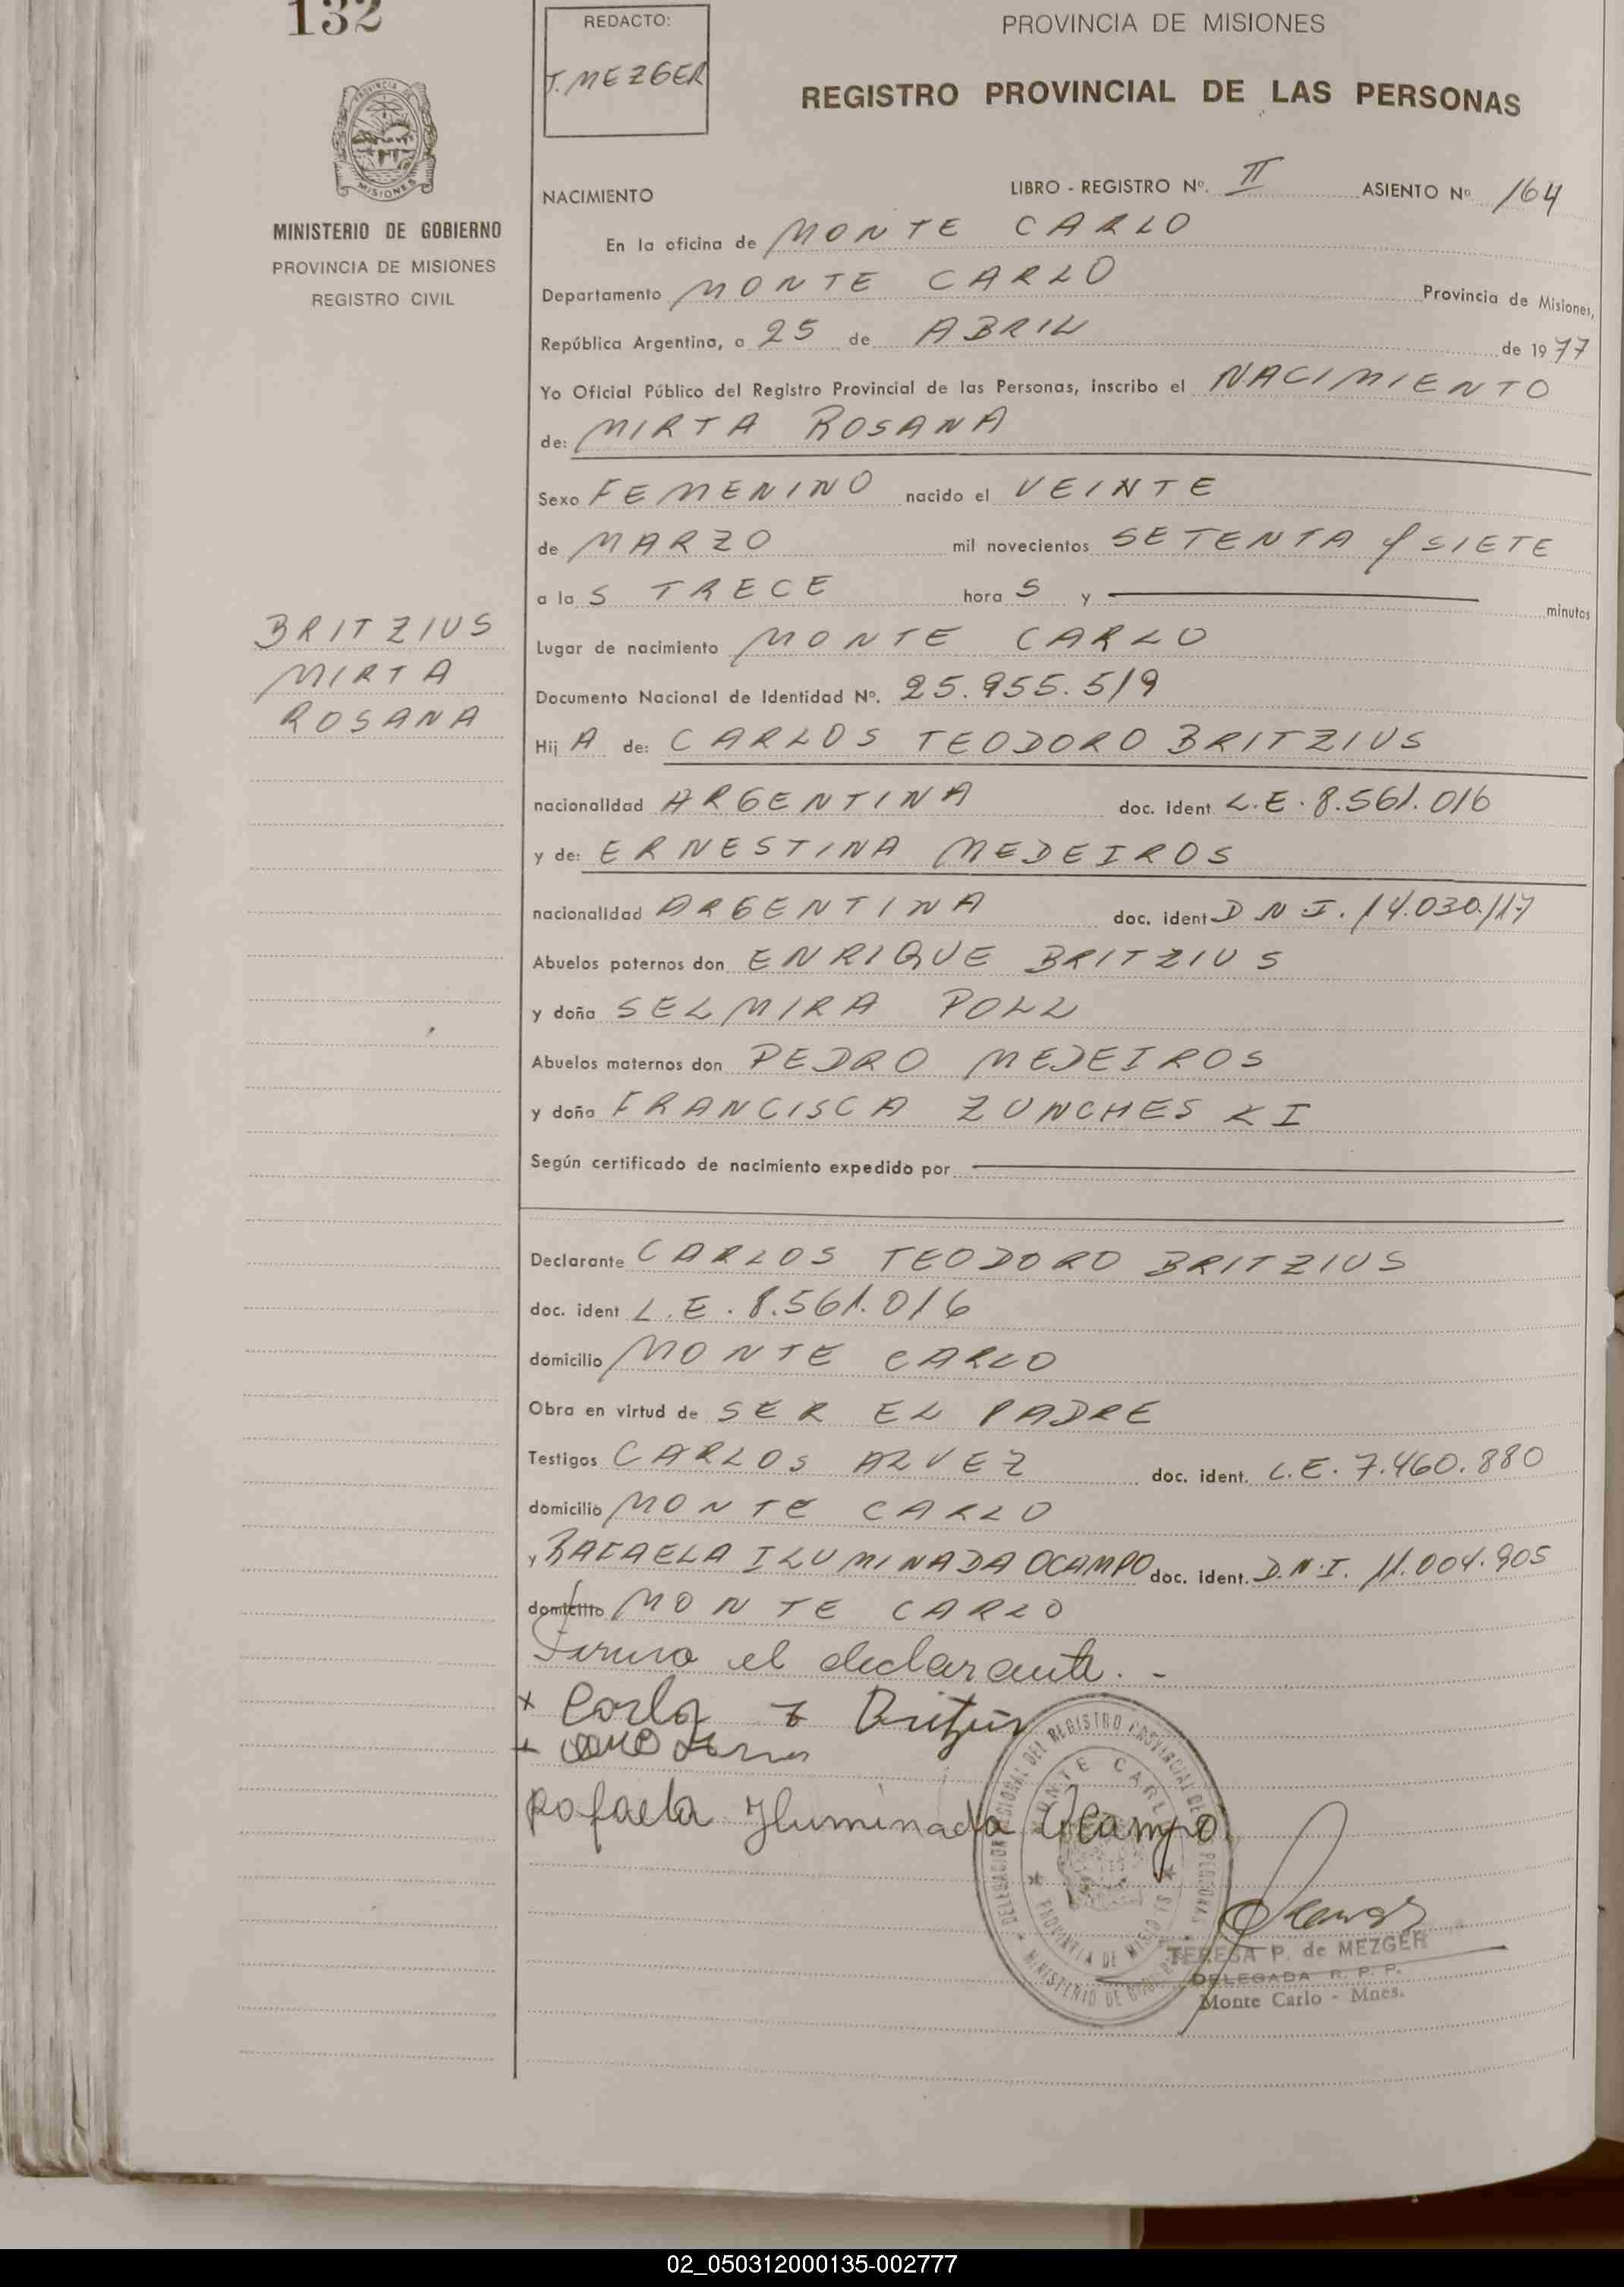 132
REDACTO:
T. MEZGER
PROVINCIA DE MISIONES
REGISTRO PROVINCIAL DE LAS PERSONAS
PROVINCIA DE
MISIONES
MINISTERIO DE GOBIERNO
PROVINCIA DE MISIONES
REGISTRO CIVIL
NACIMIENTO
LIBRO - REGISTRO Nº. II ASIENTO Nº 164
En la oficina de MONTE CARLO
Departamento MONTE CARLO Provincia de Misiones,
República Argentina, a 25 de ABRIL de 1977
Yo Oficial Público del Registro Provincial de las Personas, inscribo el NACIMIENTO
de: MIRTA ROSANA
Sexo FEMENINO nacido el VEINTE
de MARZO mil novecientos SETENTA y SIETE
a la S TRECE hora S y minutos
BRITZIUS
MIRTA
ROSANA
Lugar de nacimiento MONTE CARLO
Documento Nacional de Identidad Nº. 25.955.519
Hij A de: CARLOS TEODORO BRITZIUS
nacionalidad ARGENTINA doc. Ident L.E. 8.561.016
y de: ERNESTINA MEDEIROS
nacionalidad ARGENTINA doc. ident D N I. 14.030.117
Abuelos paternos don ENRIQUE BRITZIUS
y doña SELMIRA POLL
Abuelos maternos don PEDRO MEDEIROS
y doña FRANCISCA ZUNCHESKI
Según certificado de nacimiento expedido por
Declarante CARLOS TEODORO BRITZIUS
doc. ident L.E. 8.561.016
domicilio MONTE CARLO
Obra en virtud de SER EL PADRE
Testigos CARLOS ALVEZ doc. ident. L.E. 7.460.880
domicilio MONTE CARLO
y RAFAELA ILUMINADA OCAMPO doc. ident. D.N.I. 11.004.905
domicilio MONTE CARLO
Firma el declarante. -
Rafaela Iluminada Ocampo
DELEGACION REGIONAL DEL REGISTRO PROVINCIAL DE LAS PERSONAS
MINISTERIO DE GOBIERNO
MONTE CARLO
PROVINCIA DE MISIONES
TERESA P. de MEZGER
DELEGADA R. P. P.
Monte Carlo - Mnes.
02_050312000135-002777